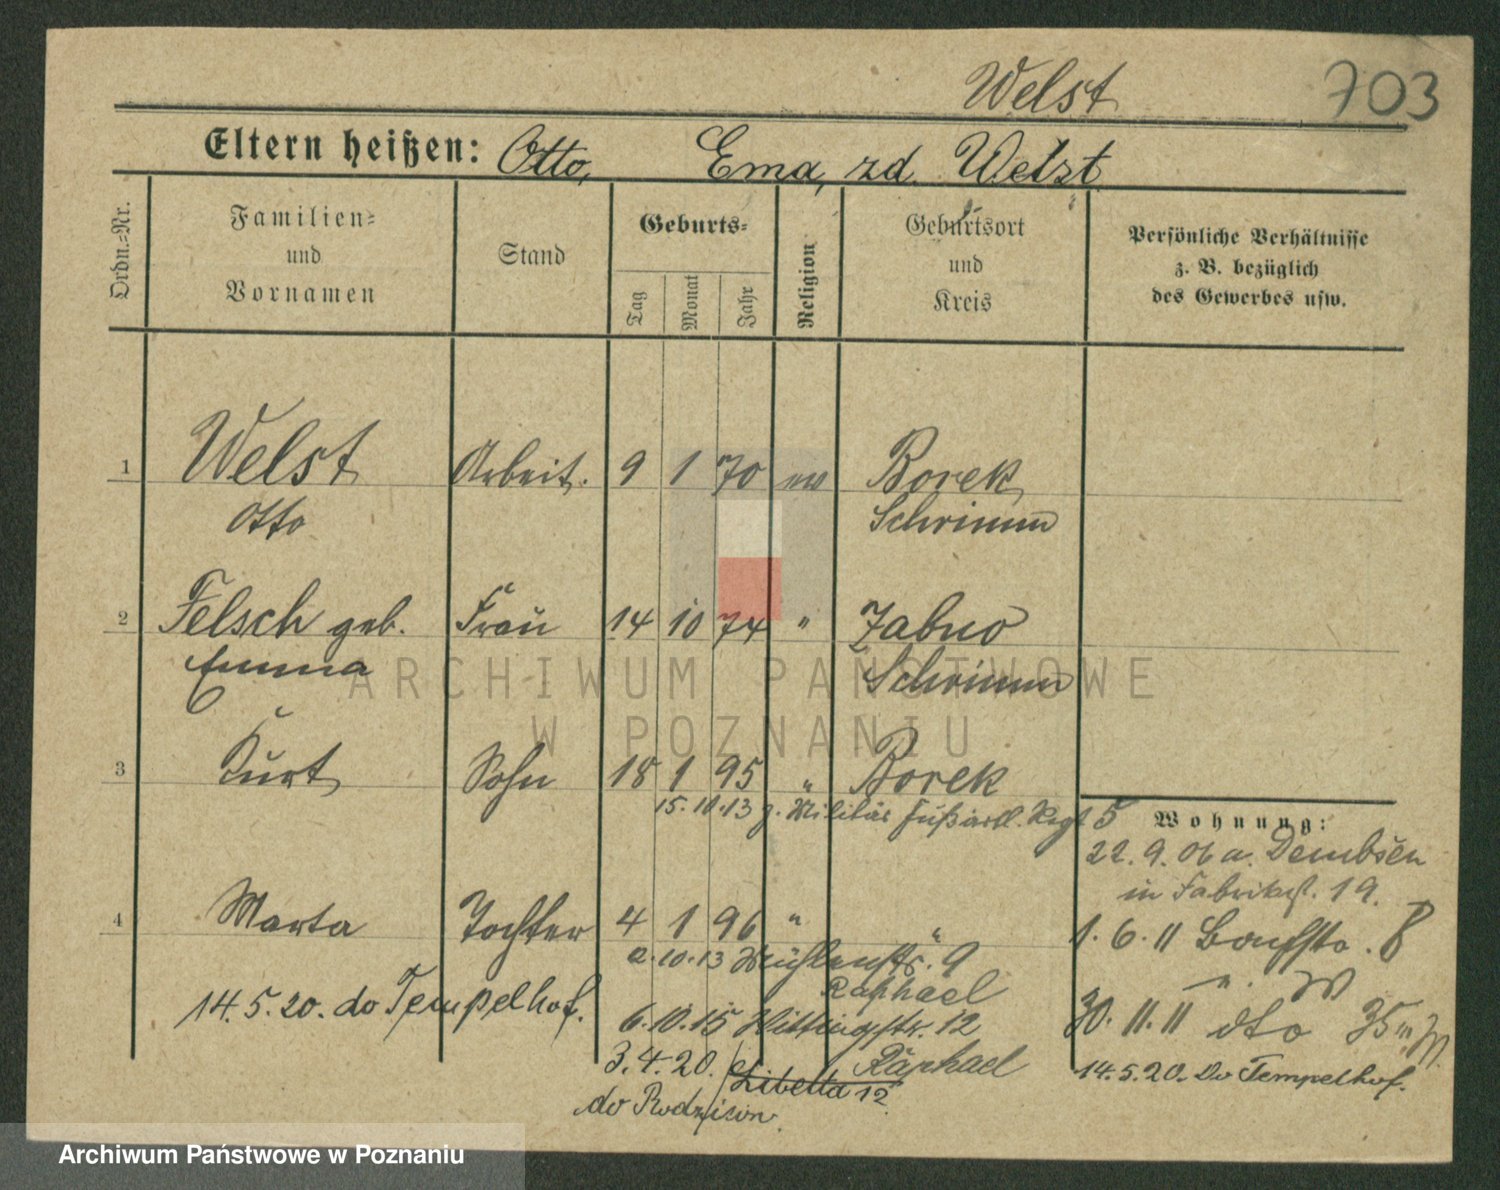 Welst 703
Eltern heißen: Otto, Ema, zd. Welzt
Ordn.=Nr.
Familien=
und
Vornamen
Stand
Geburts=
Tag Monat Jahr
Religion
Geburtsort
und
Kreis
Persönliche Verhältnisse
z. B. bezüglich
des Gewerbes usw.
1 Welst Arbeit. 9 1 70 ev Borek
Otto Schrimm
2 Felsch geb. Frau 14 10 74 " Zabno
Emma Schrimm
3 Kurt Sohn 18 1 95 " Borek
15.10.13 z. Militär Fußartl. Regt 5
Wohnung:
22.9.06 a. Dembsen
in Fabrikst. 19.
4 Marta Tochter 4 1 96 " "
1.6.11 8
2.10.13 Mühlenstr. 9
Raphael
14.5.20. do Tempelhof.
6.10.15 12
Raphael
30.11.11 dto 35
3.4.20. Libelta 12
do Rodziców.
14.5.20. Do Tempelhof.
ARCHIWUM PAŃSTWOWE
W POZNANIU
Archiwum Państwowe w Poznaniu